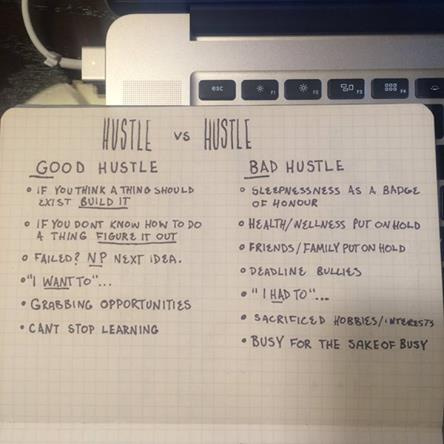 esc
F1
F2
F3
F4
HUSTLE vs HUSTLE
GOOD HUSTLE
• IF YOU THINK A THING SHOULD
EXIST BUILD IT
• IF YOU DONT KNOW HOW TO DO
A THING FIGURE IT OUT
• FAILED? NP NEXT IDEA.
• "I WANT TO"...
• GRABBING OPPORTUNITIES
• CANT STOP LEARNING
BAD HUSTLE
• SLEEPNESSNESS AS A BADGE
OF HONOUR
• HEALTH/WELLNESS PUT ON HOLD
• FRIENDS/FAMILY PUT ON HOLD
• DEADLINE BULLIES
• "I HAD TO"...
• SACRIFICED HOBBIES/INTERESTS
• BUSY FOR THE SAKE OF BUSY